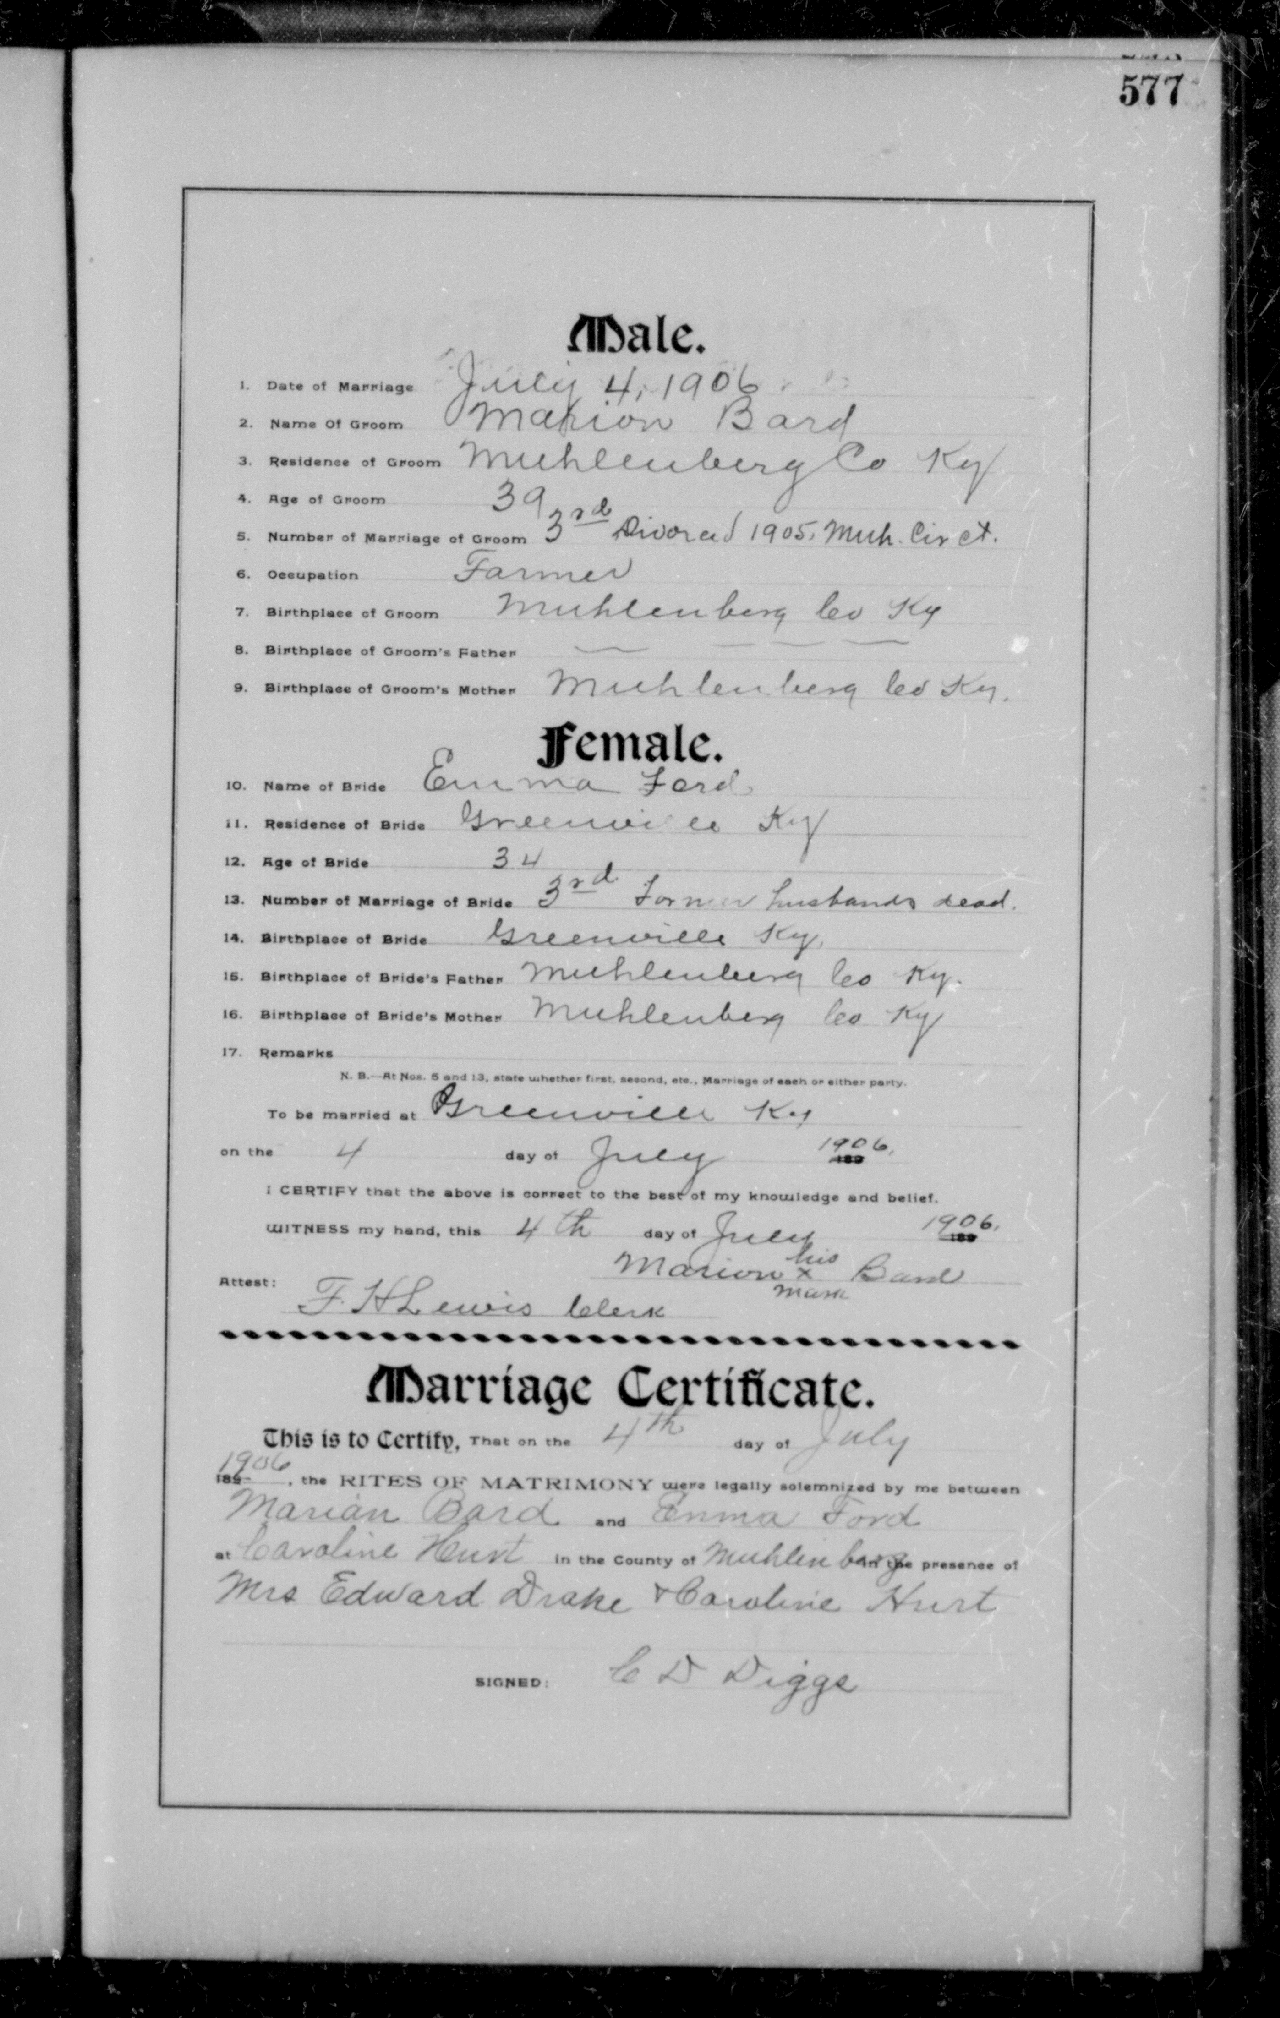 577
Male.
1. Date of Marriage July 4, 1906
2. Name Of Groom Marion Bard
3. Residence of Groom Muhlenberg Co Ky
4. Age of Groom 39
5. Number of Marriage of Groom 3rd Divorced 1905, Muh. Cir ct.
6. Occupation Farmer
7. Birthplace of Groom Muhlenberg Co Ky
8. Birthplace of Groom's Father — — —
9. Birthplace of Groom's Mother Muhlenberg Co Ky.
Female.
10. Name of Bride Emma Ford
11. Residence of Bride Greenville Ky
12. Age of Bride 34
13. Number of Marriage of Bride 3rd Former husbands dead.
14. Birthplace of Bride Greenville Ky.
15. Birthplace of Bride's Father Muhlenberg Co Ky.
16. Birthplace of Bride's Mother Muhlenberg Co Ky
17. Remarks
N. B.—At Nos. 5 and 13, state whether first, second, etc., Marriage of each or either party.
To be married at Greenville Ky
on the 4 day of July 1906, 189
I CERTIFY that the above is correct to the best of my knowledge and belief.
WITNESS my hand, this 4th day of July 1906. 189
Marion his x mark Bard
Attest:
F. H Lewis Clerk
Marriage Certificate.
This is to Certify, That on the 4th day of July
1906 189 , the RITES OF MATRIMONY were legally solemnized by me between
Marian Bard and Emma Ford
at Caroline Hurt in the County of Muhlenberg in the presence of
Mrs Edward Drake & Caroline Hurt
SIGNED: C D Diggs